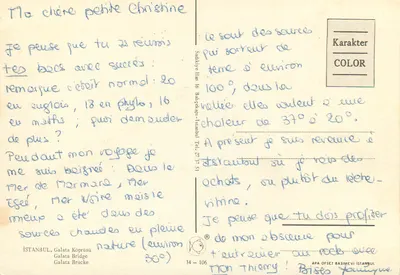 Ma chère petite Christine
Je pense que tu as réussi
tes bacs avec succès :
remarque c'était normal : 20
en anglais, 18 en phylo, 16
en maths, que demander
de plus ?
Pendant mon voyage je
me suis baigné : Dans le
Mer de Marmara, Mer
Egée, Mer Noire mais le
mieux a été dans des
sources chaudes en pleine
nature (environ
30°)
Ce sont des sources
qui sortent de
terre à environ
100°, dans la
vallée elles coulent à une
chaleur de 37° à 20°.
A présent je suis revenue à
Istanbul où je fais des
achats, ou plutôt du lèche-
vitrine.
Je pense que tu dois profiter
de mon absence pour
t'entraîner au rock avec
Mon Thierry ! Bises
Karakter
COLOR
İSTANBUL, Galata Köprüsü
Galata Bridge
Galata Brücke